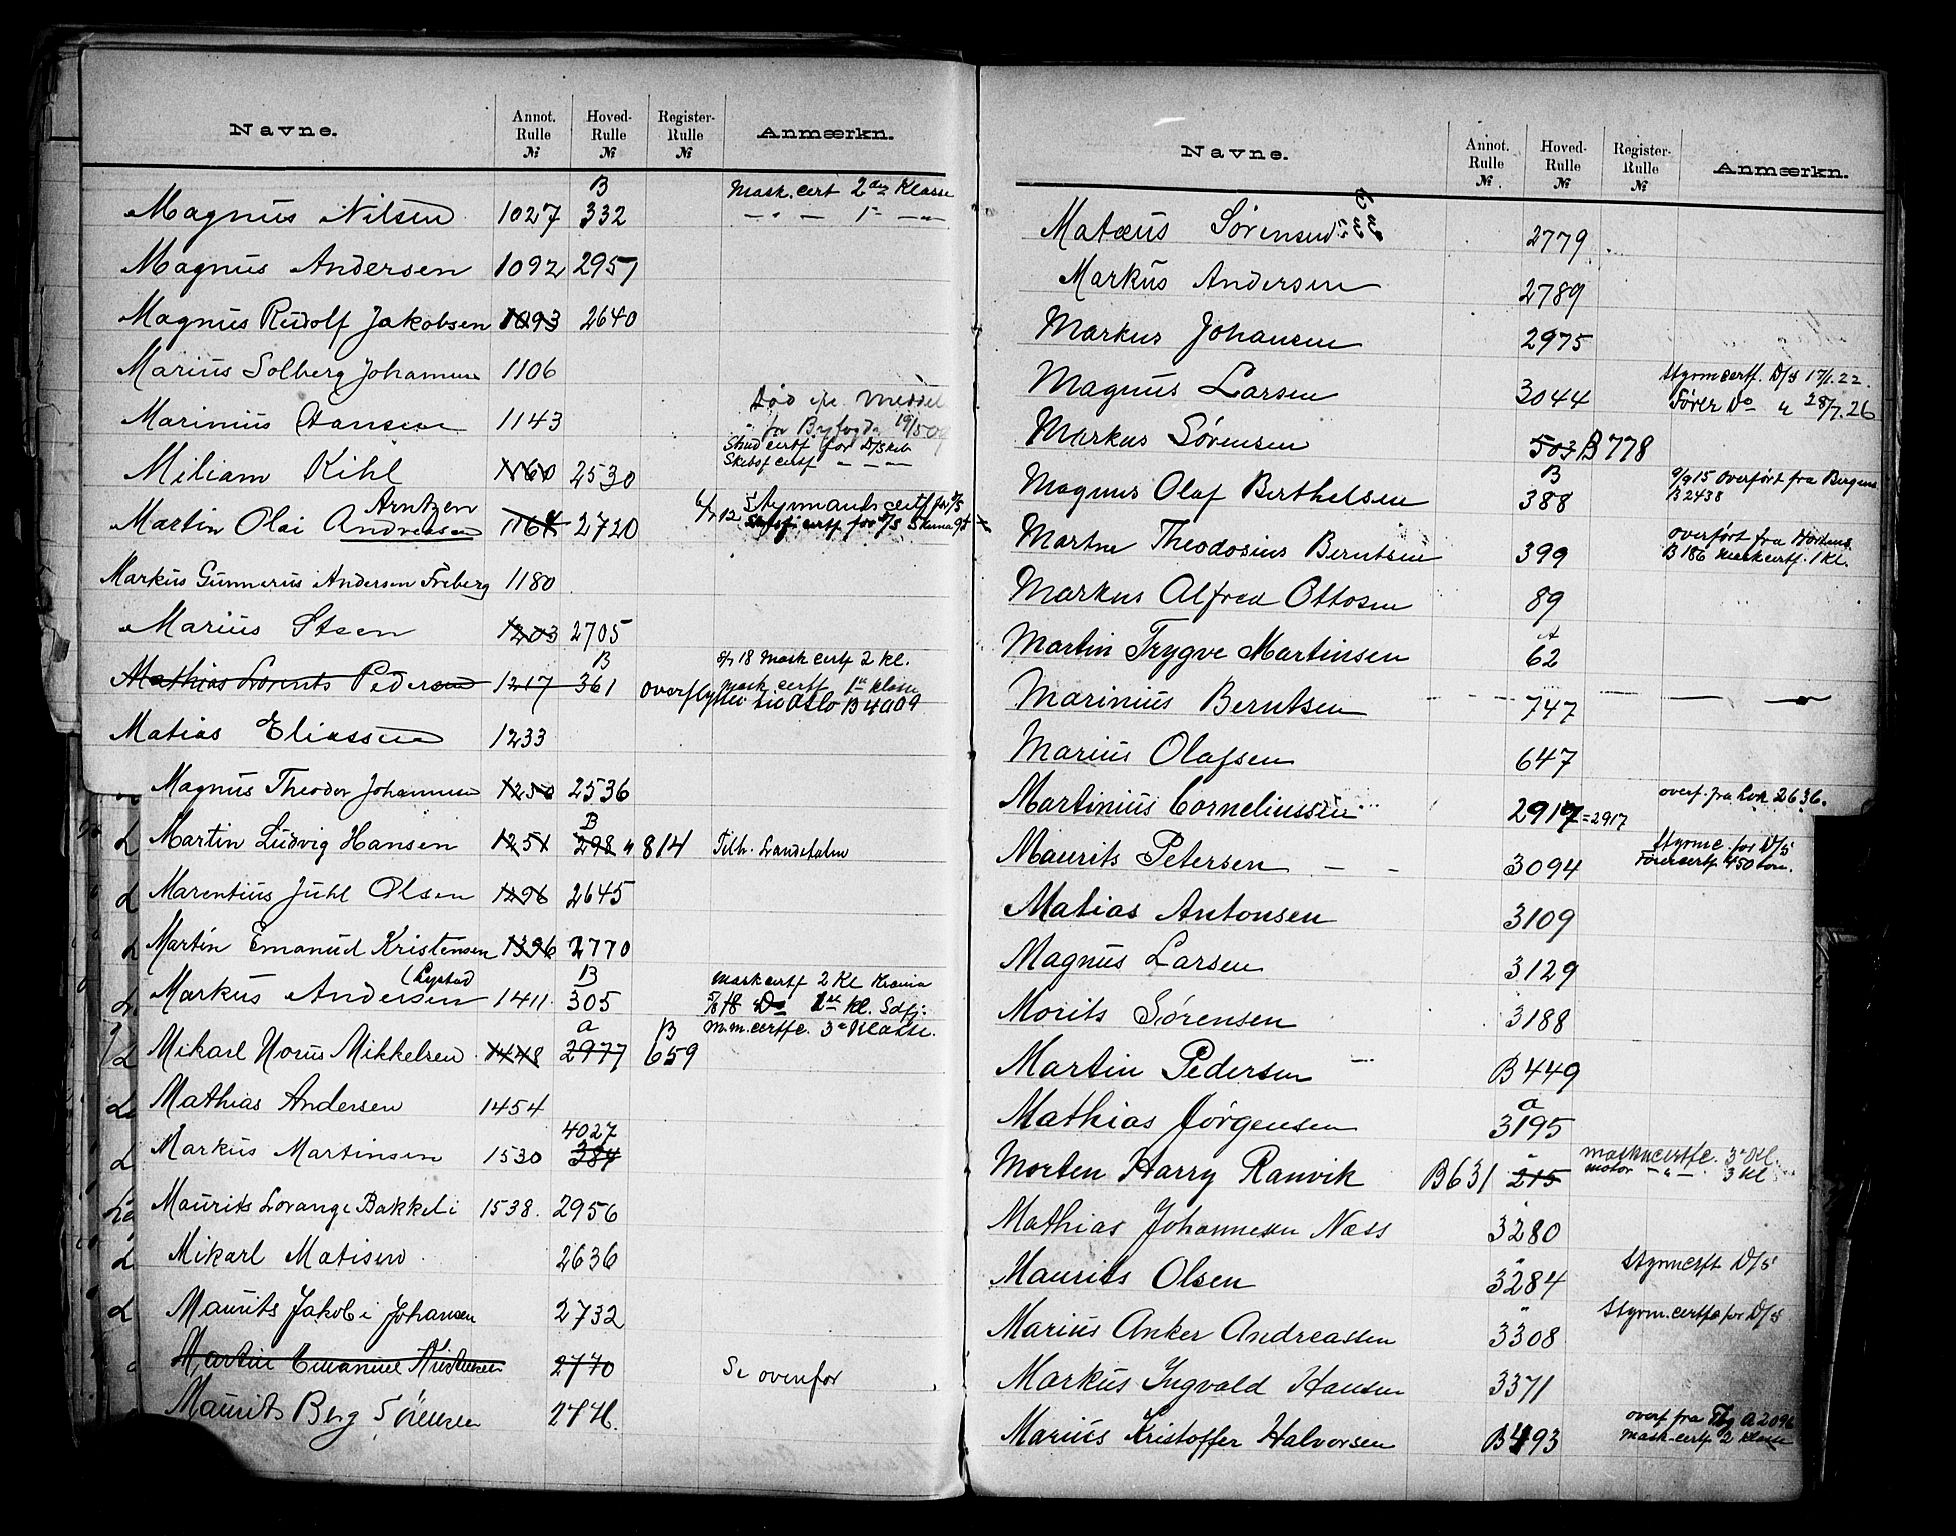 Navne. Annot. Rulle № Hoved- Rulle № Register- Rulle № Anmærkn.
B Mask. cert 2den Klasse
Magnus Nilsen 1027 332 — " — 1ste — " —
Magnus Andersen 1092 2951
Magnus Rudolf Jakobsen 1093 2640
Marius Solberg Johannsen 1106
Død
Marinius Hansen 1143 19/5 09
Miliam Kihl 1160 2530
Arntzen
Martin Olai Andreasen 1164 2720
Markus Gunnerius Andersen Freberg 1180
Marius Steen 1203 2705
B 18 Mask cert 2 Kl.
Mathias Lorents Pedersen 1217 361 mask. certf. 1ste Klasse
overflyttet til Oslo B 4909
Matias Eliassen 1233
Magnus Theodor Johannsen 1250 2536
B
Martin Ludvig Hansen 1251 298 814 Tilh. Landetaln
Marentius Juhl Olsen 1296 2645
Martin Emanuel Kristensen 1396 2770
(Lystad B Mask certf 2 Kl Krania
Markus Andersen 1411 305 5/8 18 Do 1ste Kl. Sdfj.
a B m.m. certfc. 3die Klasse.
Mikarl Norus Mikkelsen 1448 2977 659
Mathias Andersen 1454
4027
Markus Martinsen 1530 384
Maurits Lorange Bakkeli 1538. 2956
Mikarl Matisen 2636
Maurits Jakobi Johansen 2732
Martin Emanuel Kristensen 2770 Se ovenfor
Maurits Berg Sörensen 2776.
Navne. Annot. Rulle № Hoved- Rulle № Register- Rulle № Anmærkn.
Matæus Sørensen 2779
Markus Andersen 2789
Markus Johansen 2975
Magnus Larsen 3044 Styrmcertf. D/S 17/1.22.
Fører Do " 28/7.26
Markus Sørensen 503 B 778
B 9/9 15 overført fra Bergens
Magnus Olaf Berthelsen 388 B 2438
overført fra Hortens
Martin Theodosius Berntsen 399 B 186 Maskcertf. 1 Kl.
Markus Alfred Ottosen 89
A
Martin Trygve Martinsen 62
Marinius Berntsen 747
Marius Olafsen 647
Martinius Corneliussen 2917 = 2917 overf. fra 2636.
Maurits Petersen 3094 Styrmc. for D/S
450 ton.
Matias Antonsen 3109
Magnus Larsen 3129
Morits Sørensen 3188
Martin Pedersen B 449
a
Mathias Jørgensen 3195
Morten Harry Ranvik B631 215 maskncertfc. 3die Kl.
motor — " — 3 Kl
Mathias Johannesen Næss 3280
Maurits Olsen 3284 Styrmcerft D/S
Marius Anker Andreassen 3308 Styrm. certfc for D/S
Markus Ingvald Hansen 3371
Marius Kristoffer Halvorsen B 493 overf fra Tbg A 2096
Mask-certf 2 Klasse